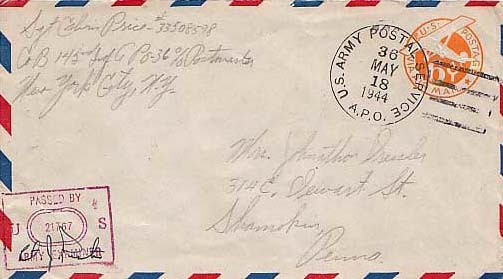 Sgt Calvin Price #33508598
Co B 145 Inf A.P.O-36 c/o Postmaster
New York City, N.Y.
U.S. ARMY POSTAL SERVICE
36
MAY
18
1944
A.P.O.
U.S. POSTAGE
MAIL
Mrs. Johnathon
314 E. Dewart St.
Shamokin,
Penna.
PASSED BY
U 21767 S
ARMY EXAMINER